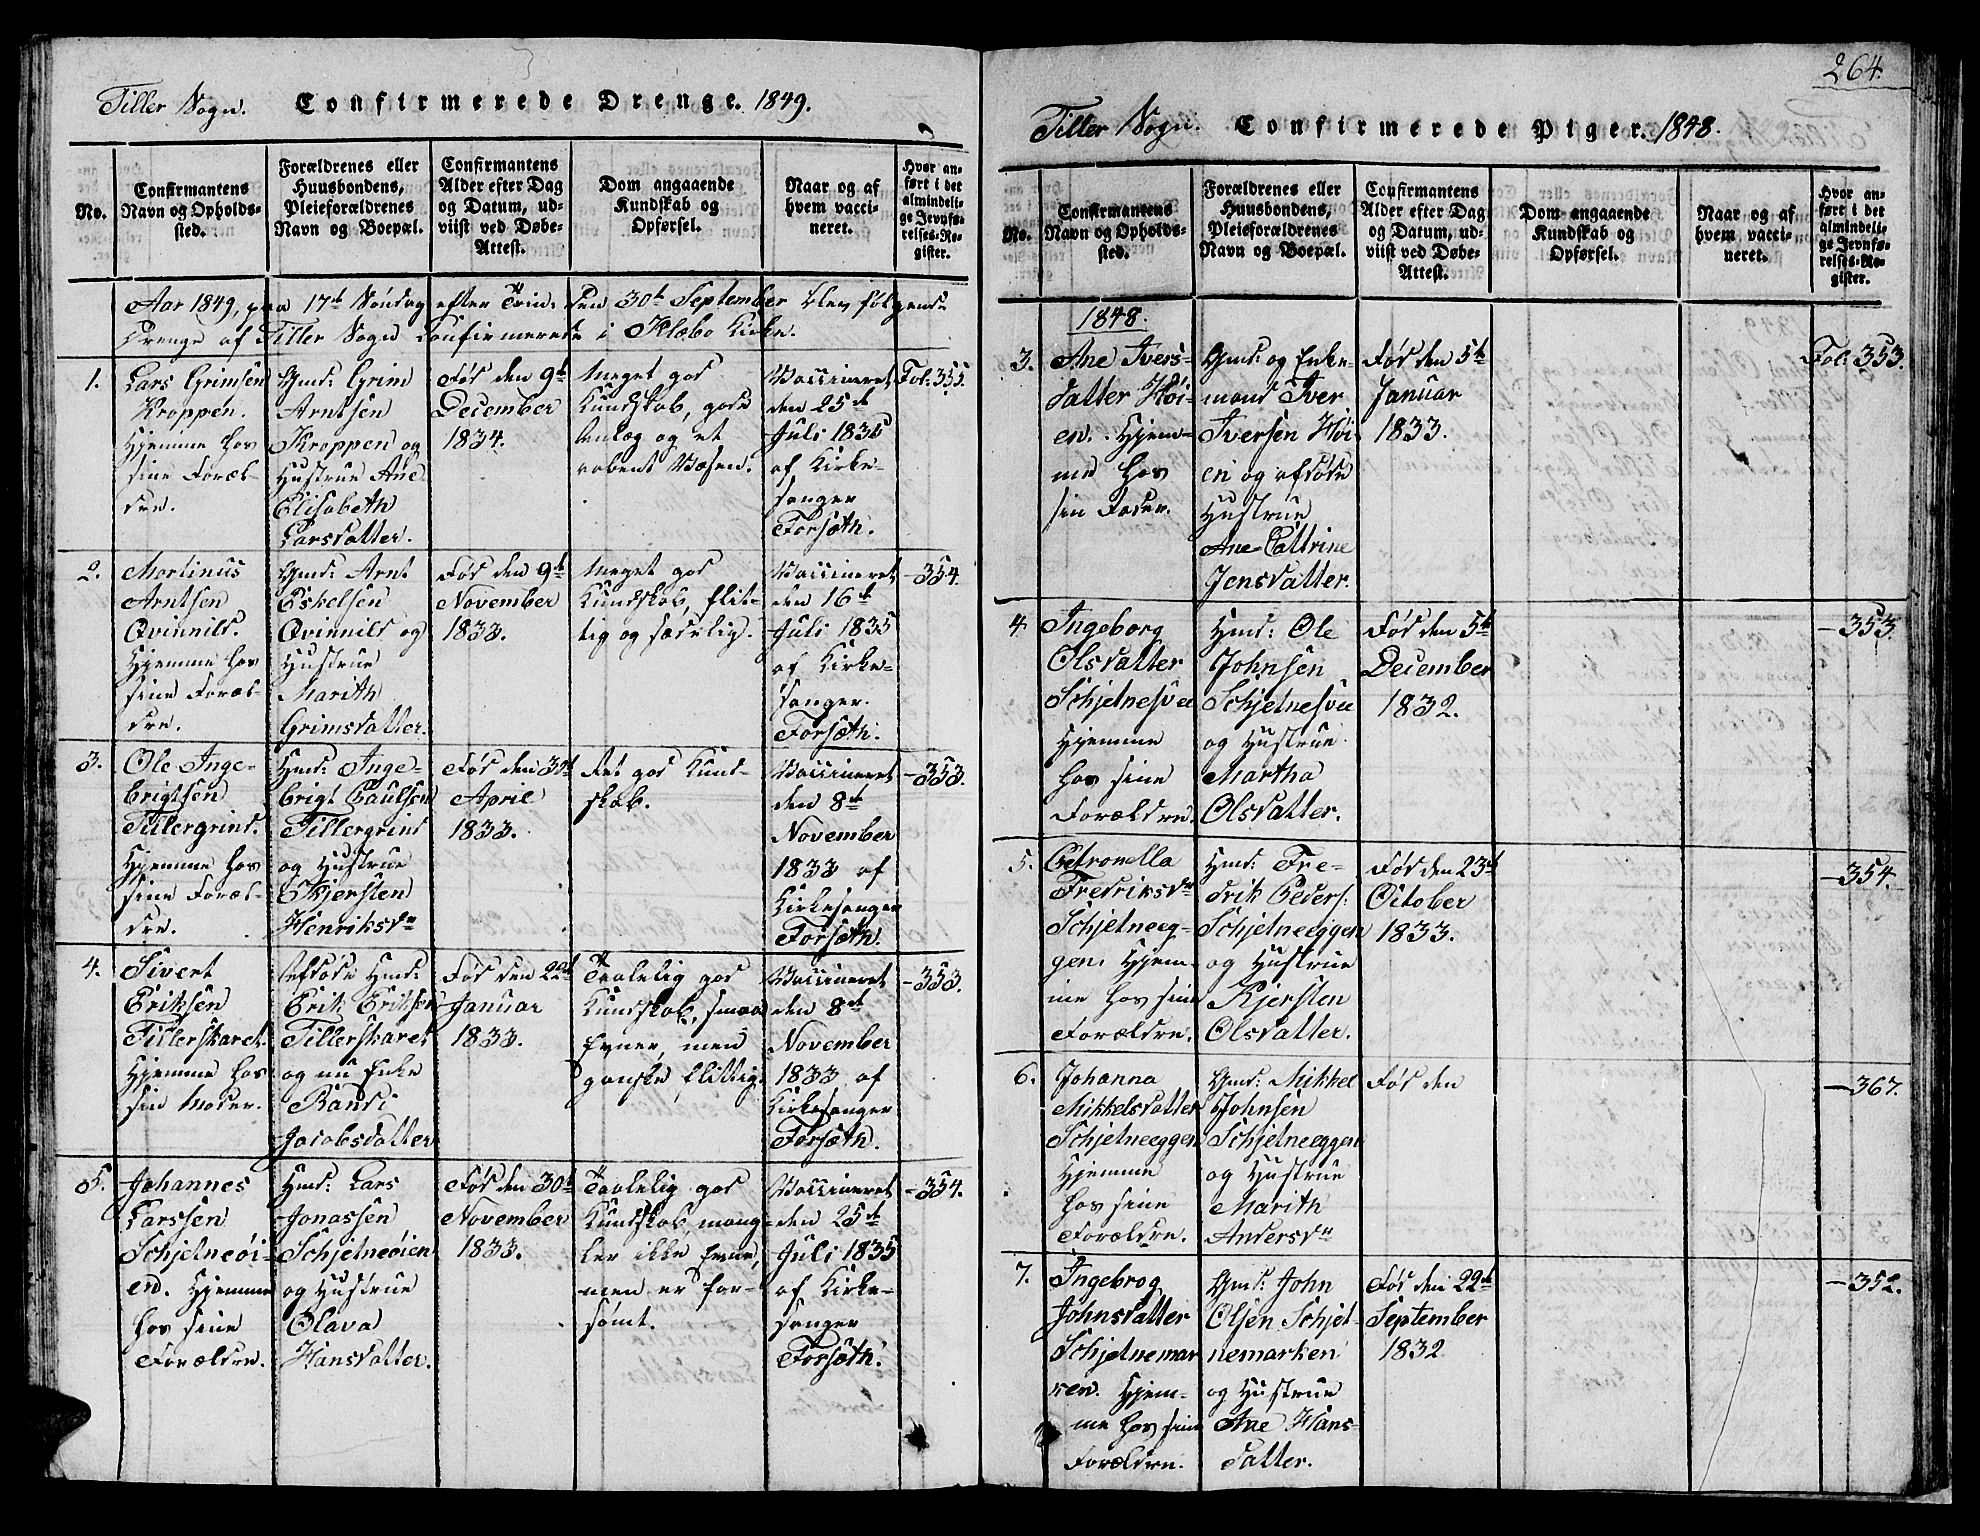 Tiller Sogn. Confirmerede Drenge. 1849.
No.
Confirmantens
Navn og Opholds-
sted.
Forældrenes eller
Huusbondens,
Pleieforældrenes
Navn og Boepæl.
Confirmantens
Alder efter Dag
og Datum, ud-
viist ved Døbe-
Attest.
Dom angaaende
Kundskab og
Opførsel.
Naar og af
hvem vacci-
neret.
Hvor an-
ført i det
almindeli-
ge Jevnfø-
relses-Re-
gister.
Aar 1849, paa 17de Søndag efter Trin: den 30te September blev følgende
Drenge af Tiller Sogn Confirmerede i Klæbo Kirke.
1.
Lars Grimsen
Kroppen.
Hjemme hos
sine Foræl-
dre.
Gmd: Grim
Arntsen
Kroppen og
Hustrue Ane
Elisabeth
Larsdatter.
Fød den 9de
December
1834.
Meget god
Kundskab, gode
Anlæg og et
aabent Væsen.
Vaccineret
den 25de
Juli 1835
af Kirke-
sanger
Forsæth.
Fol: 355.
2.
Mortinus
Arntsen
Qvinnild.
Hjemme hos
sine Foræl-
dre.
Gmd: Arnt
Eskelsen
Qvinnild og
Hustrue
Marith
Grimsdatter.
Fød den 9de
November
1833.
Meget god
Kundskab, flit-
tig og sædelig.
Vaccineret
den 16de
Juli 1835
af Kirke-
sanger.
Forsæth.
- 354.
3.
Ole Inge-
brigtsen
Tillergrind.
Hjemme hos
sine Foræl-
dre.
Hmd: Inge-
brigt Paulsen
Tillergrind
og Hustrue
Kjersten
Henriksdr
Fød den 30te
April
1833.
Ret god Kund-
skab.
Vaccineret
den 8de
November
1833 af
Kirkesanger
Forsæth.
- 353.
4.
Sivert
Eriksen
Tillerskaret.
Hjemme hos
sin Moder.
Afdøde Hmd:
Erik Eriksen
Tillerskaret
og nu Enke
Randi
Jacobsdatter
Fød den 22de
Januar
1833.
Taalelig god
Kundskab, smaa
Evner, men
ganske flittig.
Vaccineret
den 8de
November
1833 af
Kirkesanger
Forsæth.
- 353.
5.
Johannes
Larssen
Schjelneöi-
en. Hjemme
hos sine
Forældre.
Hmd: Lars
Jonassen
Schjelneöien
og Hustrue
Olava
Hansdatter.
Fød den 30te
November
1833.
Taalelig god
Kundskab, mang-
ler ikke Evne,
men er for-
sømt.
Vaccineret
den 25de
Juli 1835
af Kirke-
sanger
Forsæth.
- 354.
264.
Tiller Sogn. Confirmerede Piger. 1848.
No.
Confirmantens
Navn og Opholds-
sted.
Forældrenes eller
Huusbondens,
Pleieforældrenes
Navn og Boepæl.
Confirmantens
Alder efter Dag
og Datum, ud-
viist ved Døbe-
Attest.
Dom angaaende
Kundskab og
Opførsel.
Naar og af
hvem vacci-
neret.
Hvor an-
ført i det
almindeli-
ge Jevnfø-
relses-Re-
gister.
1848.
3.
Ane Ivers-
datter Höi-
en. Hjem-
me hos
sin Fader.
Gmd: og Enke-
mand Iver
Iversen Höi-
en og afdøde
Hustrue
Ane Cattrine
Jensdatter.
Fød den 5te
Januar
1833.
Fol: 353.
4.
Ingeborg
Olsdatter
Schjelnesvee
Hjemme
hos sine
Forældre.
Hmd: Ole
Johnsen
Schjelnesvee
og Hustrue
Martha
Olsdatter.
Fød den 5te
December
1832.
- 353.
5.
Petronella
Fredriksdr
Schjelneeg-
gen. Hjem-
me hos sine
Forældre.
Hmd: Fre-
drik Peders:
Schjelneeggen
og Hustrue
Kjersten
Olsdatter.
Fød den 23de
October
1833.
- 354.
6.
Johanna
Mikkelsdatter
Schjelneeggen
Hjemme
hos sine
Forældre.
Gmd: Mikkel
Johnsen
Schjelneeggen
og Hustrue
Marith
Andersdr
Fød den
- 367.
7.
Ingebrog
Johnsdatter
Schjelnemar
ken. Hjem-
me hos sine
Forældre.
Gmd: John
Olsen Schjel-
nemarken
og Hustrue
Ane Hans-
datter.
Fød den 22de
September
1832
- 352.